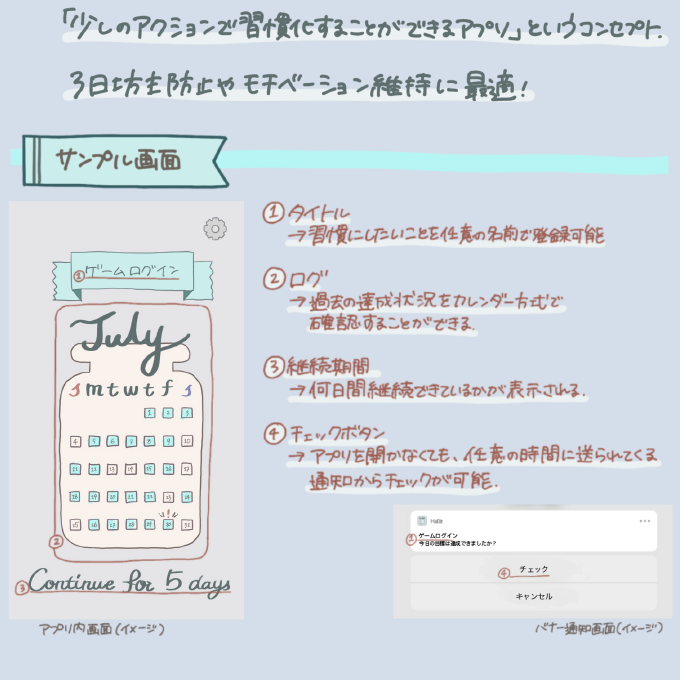 「少しのアクションで習慣化することができるアプリ」というコンセプト.
3日坊主防止やモチベーション維持に最適!
サンプル画面
①ゲームログイン
July
s m t w t f s
1 2 3
4 5 6 7 8 9 10
11 12 13 14 15 16 17
18 19 20 21 22 23 24
25 26 27 28 29 30 31
②
③Continue for 5 days
アプリ内画面(イメージ)
①タイトル
→習慣にしたいことを任意の名前で登録可能
②ログ
→過去の達成状況をカレンダー方式で
確認することができる.
③継続期間
→何日間継続できているかが表示される.
④チェックボタン
→アプリを開かなくても、任意の時間に送られてくる
通知からチェックが可能.
Habit
①ゲームログイン
今日の目標は達成できましたか?
④チェック
キャンセル
バナー通知画面(イメージ)